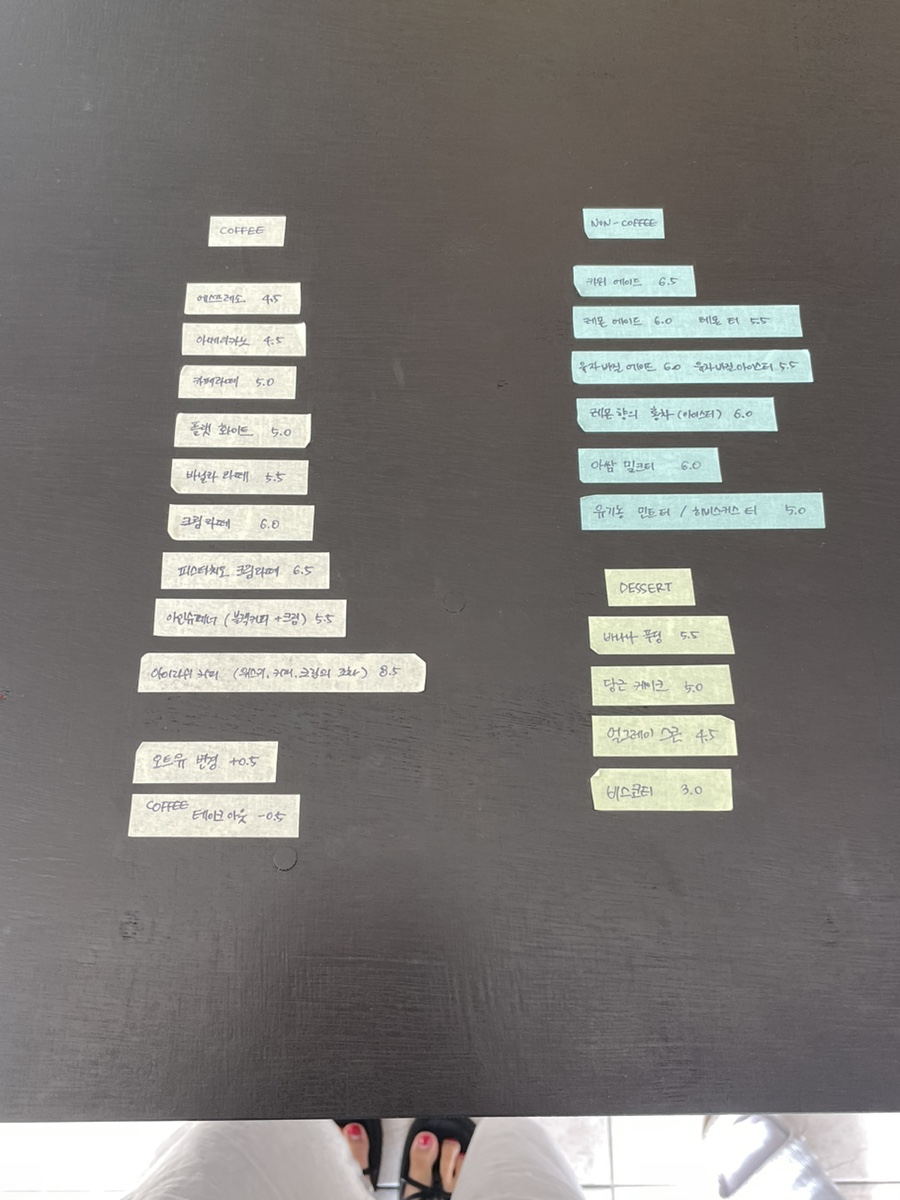 COFFEE
에스프레소 4.5
아메리카노 4.5
카페라떼 5.0
플랫 화이트 5.0
바닐라 라떼 5.5
크림라떼 6.0
피스타치오 크림라떼 6.5
아인슈페너 (블랙커피 + 크림) 5.5
아이리쉬 커피 (위스키, 커피, 크림의 조화) 8.5
오트유 변경 +0.5
COFFEE 테이크아웃 -0.5
NON-COFFEE
키위 에이드 6.5
레몬 에이드 6.0 레몬 티 5.5
유자바질 에이드 6.0 유자바질아이스티 5.5
레몬향의 홍차 (아이스티) 6.0
아쌈 밀크티 6.0
유기농 민트티 / 히비스커스 티 5.0
DESSERT
바나나 푸딩 5.5
당근 케이크 5.0
얼그레이 스콘 4.5
비스코티 3.0